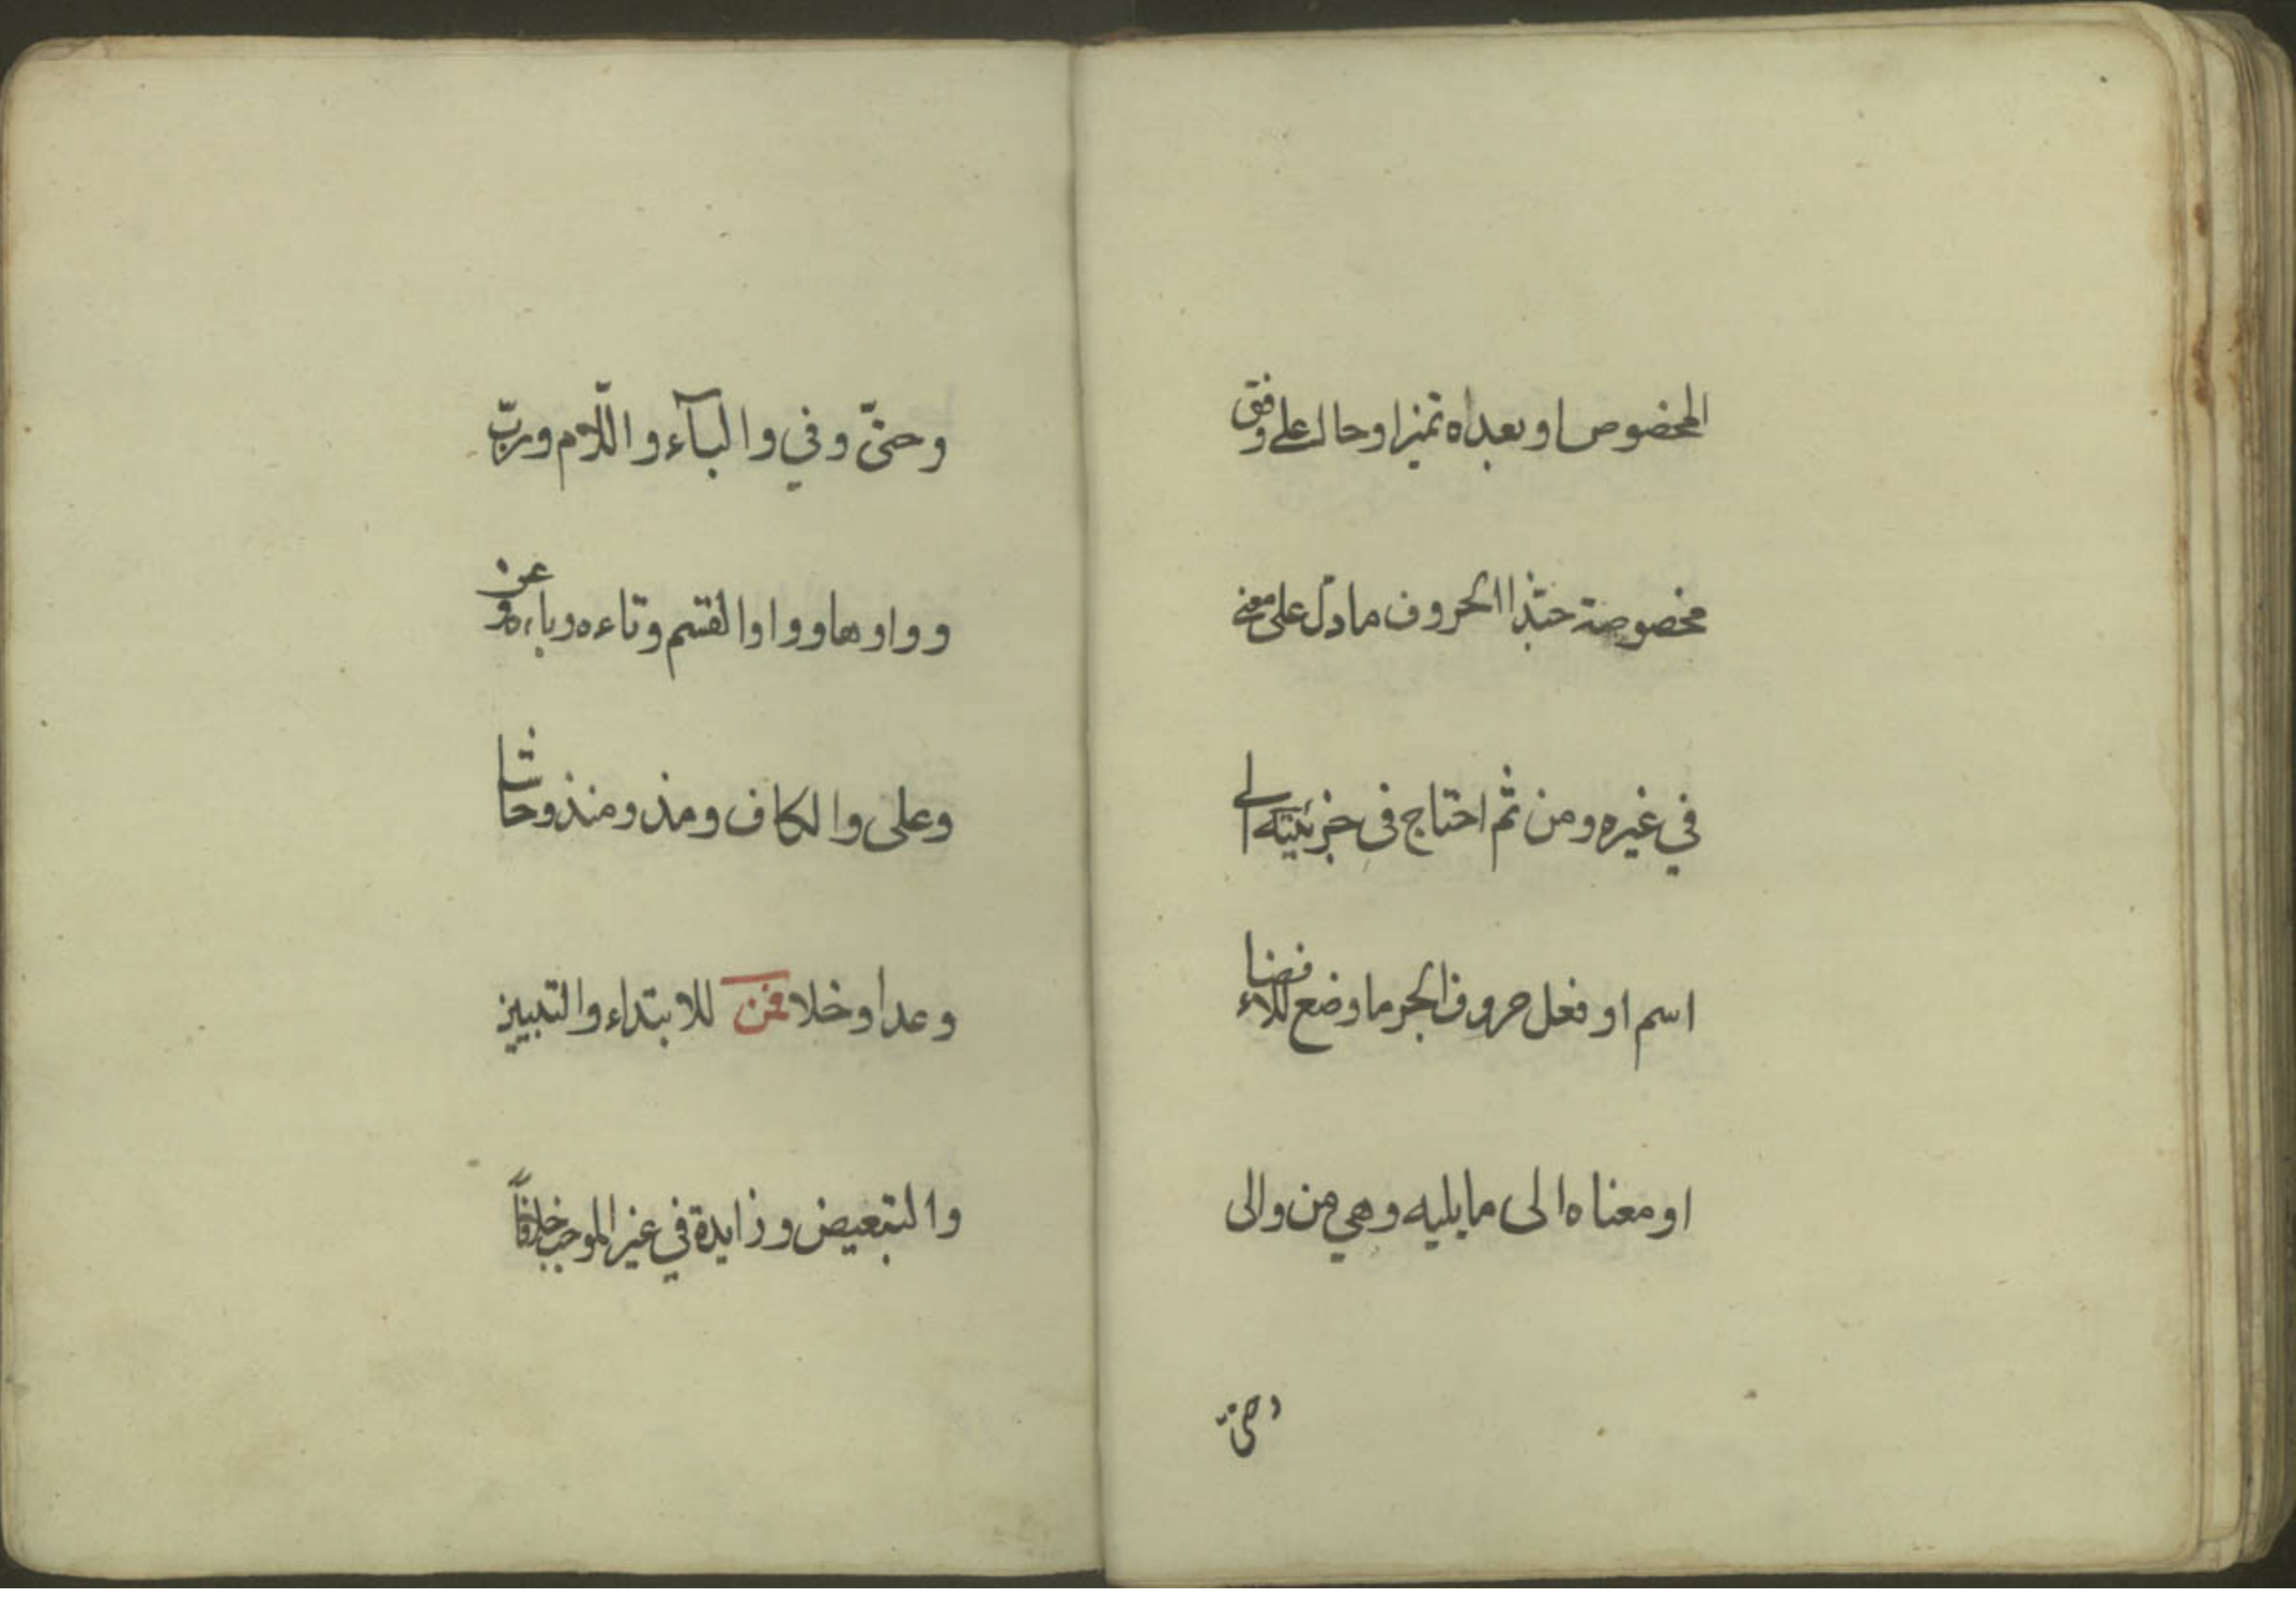 المخصوص او بعداه تميزا وحالا على وفق
مخصوصة حبذا الحروف مادلّ على معنى
في غيره ومن ثم احتاج فى جزئيته الى
اسم او فعل حروف الجر ما وضع للافضاء
او معناه الى ما يليه وهي من والى
وحتى
وحتىّ وفي والبآء واللّام وربّ
وواوها وواو القسم وتاءه وباءه وعن
وعلى والكاف ومذ ومنذ وحاشا
وعدا وخلا فمن للابتداء والتبيين
والتبعيض وزايدة في غير الموجب خلافاً